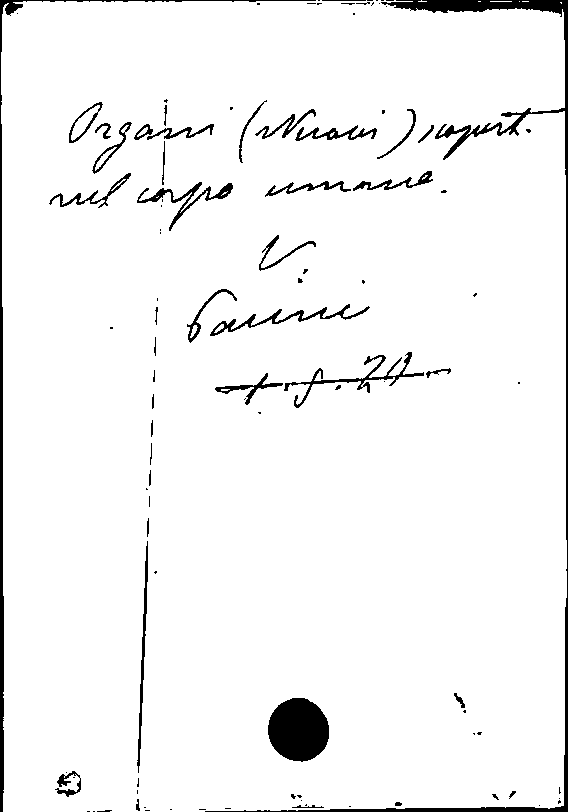 Organi (Nuovi) scopert.
nel corpo umano.
V:
Pacini